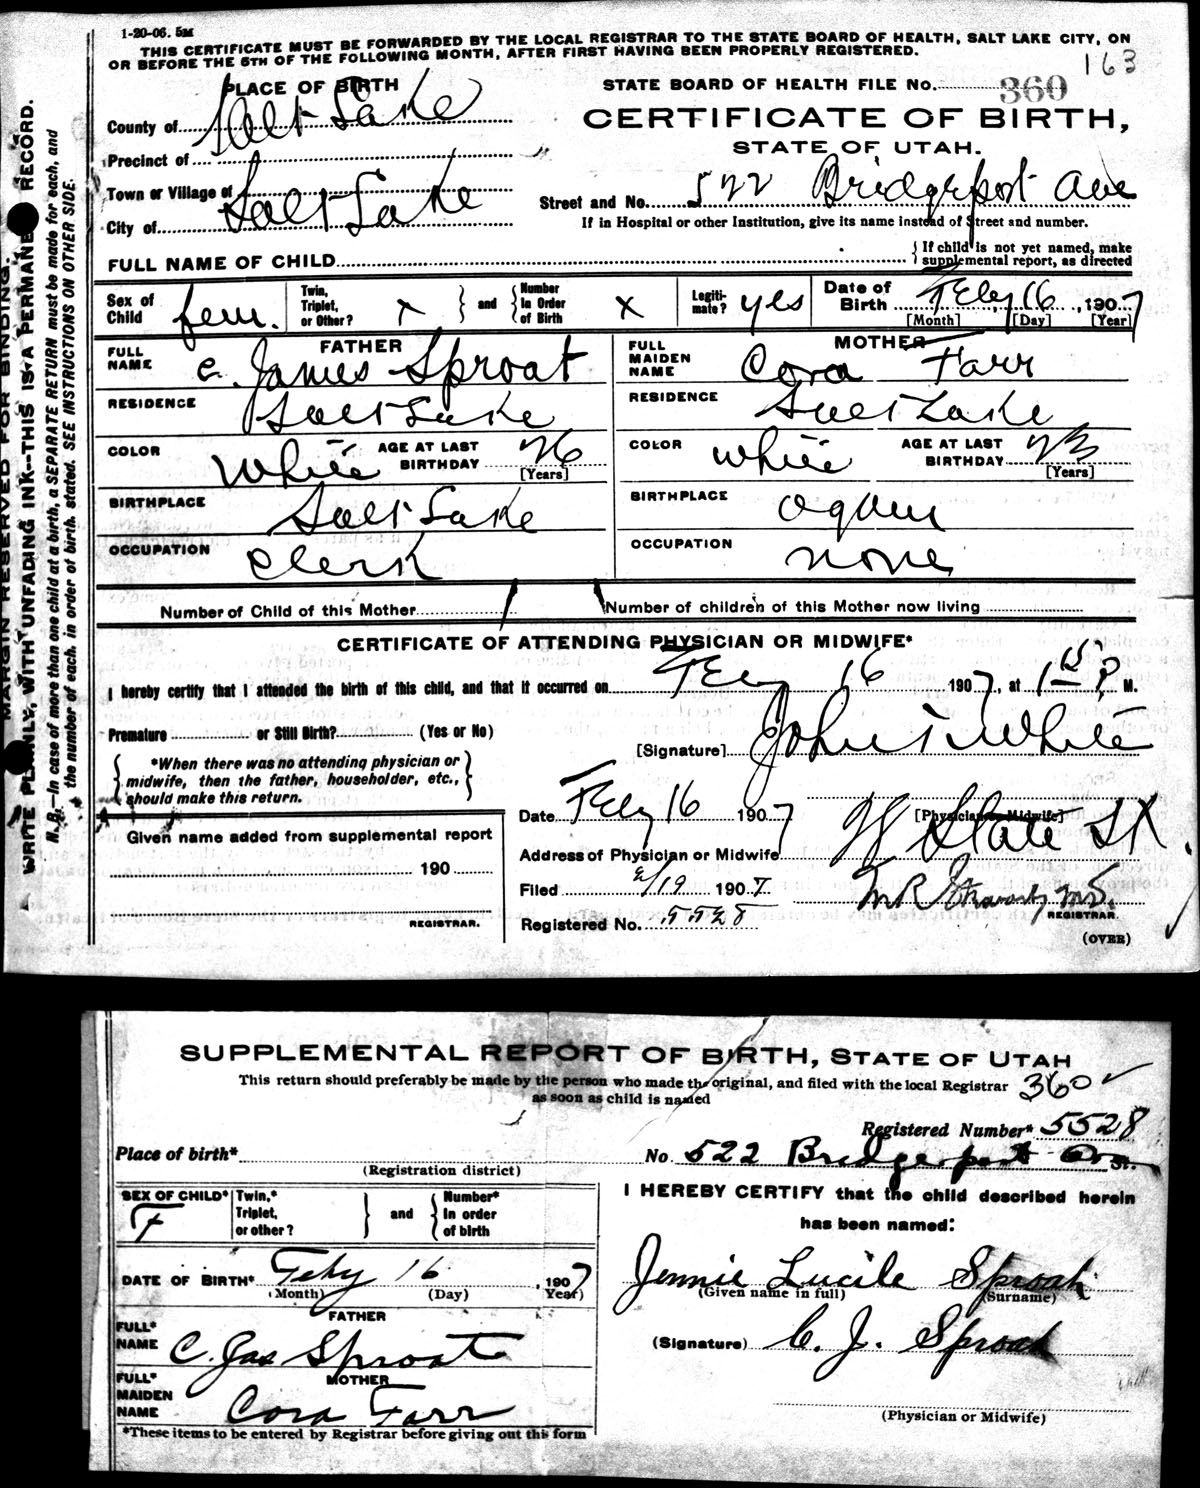 1-20-06. 5M
THIS CERTIFICATE MUST BE FORWARDED BY THE LOCAL REGISTRAR TO THE STATE BOARD OF HEALTH, SALT LAKE CITY, ON
OR BEFORE THE 5TH OF THE FOLLOWING MONTH, AFTER FIRST HAVING BEEN PROPERLY REGISTERED.
163
PLACE OF BIRTH
STATE BOARD OF HEALTH FILE No. 360
County of Salt Lake
CERTIFICATE OF BIRTH,
Precinct of
STATE OF UTAH.
Town or Village of
Street and No. 522 Bridgeport Ave
City of Salt Lake
If in Hospital or other Institution, give its name instead of Street and number.
FULL NAME OF CHILD
{ If child is not yet named, make
supplemental report, as directed
Sex of Child fem.
Twin, Triplet, or Other? x } and { Number In Order of Birth x
Legitimate? yes
Date of Birth Feby 16, 1907
[Month] [Day] [Year]
FATHER
MOTHER
FULL NAME C. James Sproat
FULL MAIDEN NAME Cora Farr
RESIDENCE Salt Lake
RESIDENCE Salt Lake
COLOR White AGE AT LAST BIRTHDAY 26 [Years]
COLOR white AGE AT LAST BIRTHDAY 23 [Years]
BIRTHPLACE Salt Lake
BIRTHPLACE Ogden
OCCUPATION Clerk
OCCUPATION none
Number of Child of this Mother 1
Number of children of this Mother now living 1
CERTIFICATE OF ATTENDING PHYSICIAN OR MIDWIFE*
I hereby certify that I attended the birth of this child, and that it occurred on Feby 16 1907, at 1 15 P M.
Premature or Still Birth? (Yes or No)
[Signature] John T White
{ *When there was no attending physician or
midwife, then the father, householder, etc.,
should make this return. }
[Physician or Midwife]
Date Feby 16 1907
Address of Physician or Midwife State St.
Given name added from supplemental report
190
Filed 2/19 1907
REGISTRAR.
REGISTRAR.
Registered No. 5528
(OVER)
MARGIN RESERVED FOR BINDING.
WRITE PLAINLY, WITH UNFADING INK--THIS IS A PERMANENT RECORD.
N. B.--In case of more than one child at a birth, a SEPARATE RETURN must be made for each, and
the number of each, in order of birth, stated. SEE INSTRUCTIONS ON OTHER SIDE.
SUPPLEMENTAL REPORT OF BIRTH, STATE OF UTAH
This return should preferably be made by the person who made the original, and filed with the local Registrar
as soon as child is named
360
Registered Number* 5528
Place of birth*
(Registration district)
No. 522 Bridgeport Ave St.
SEX OF CHILD* F
Twin,* Triplet, or other? } and { Number* In order of birth
I HEREBY CERTIFY that the child described herein
has been named:
DATE OF BIRTH* Feby 16, 1907
(Month) (Day) (Year)
Jennie Lucile Sproat
(Given name in full) (Surname)
FATHER
FULL* NAME C. Jas Sproat
(Signature) C. J. Sproat
MOTHER
FULL* MAIDEN NAME Cora Farr
(Physician or Midwife)
*These items to be entered by Registrar before giving out this form